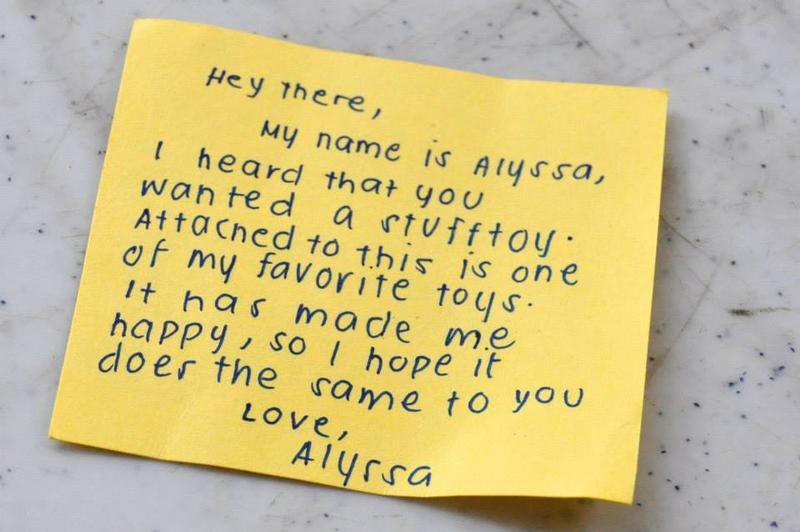 Hey there,
My name is Alyssa,
I heard that you
wanted a stufftoy.
Attached to this is one
of my favorite toys.
It has made me
happy, so I hope it
does the same to you
Love,
Alyssa